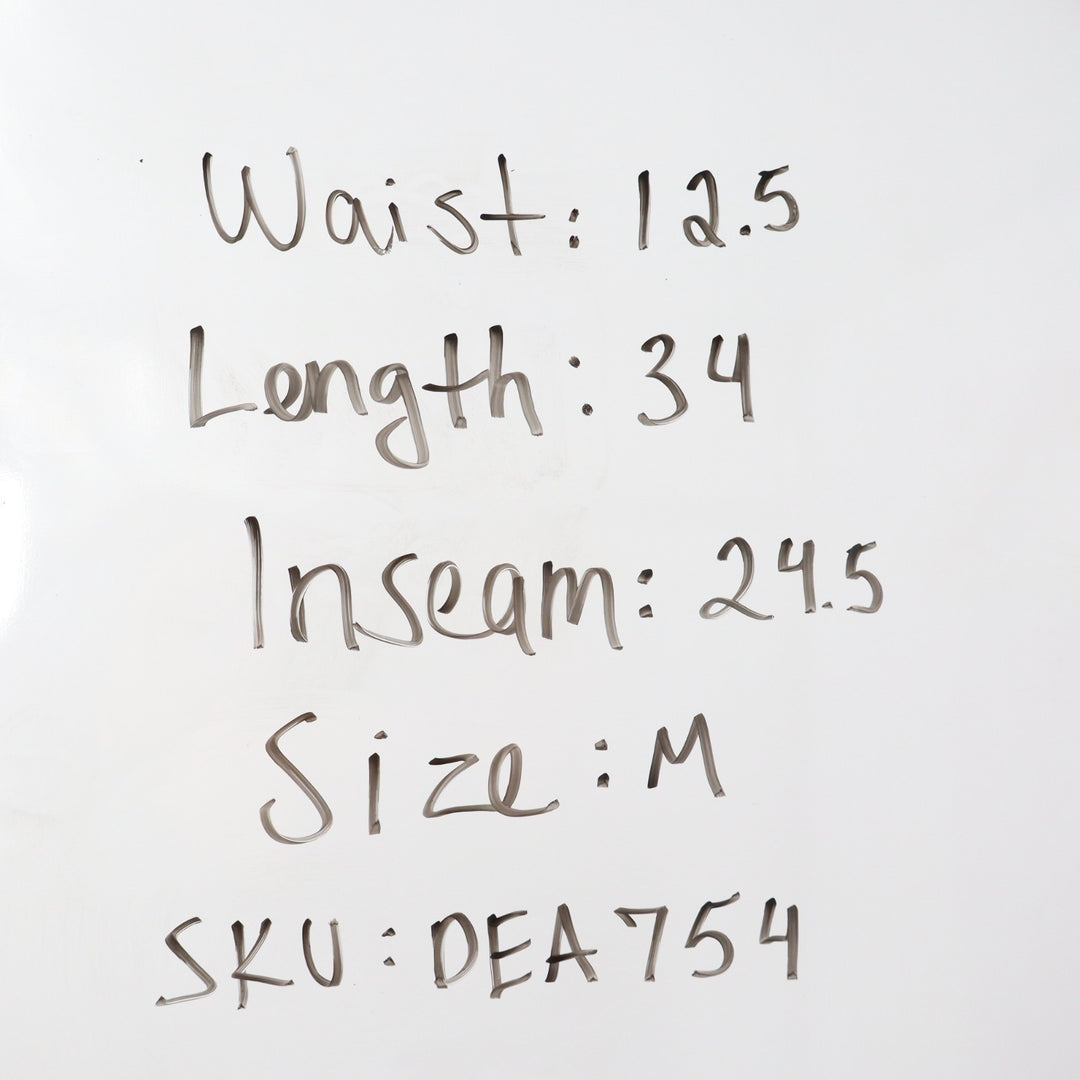 Waist: 12.5
Length: 34
Inseam: 24.5
Size: M
SKU: DEA754